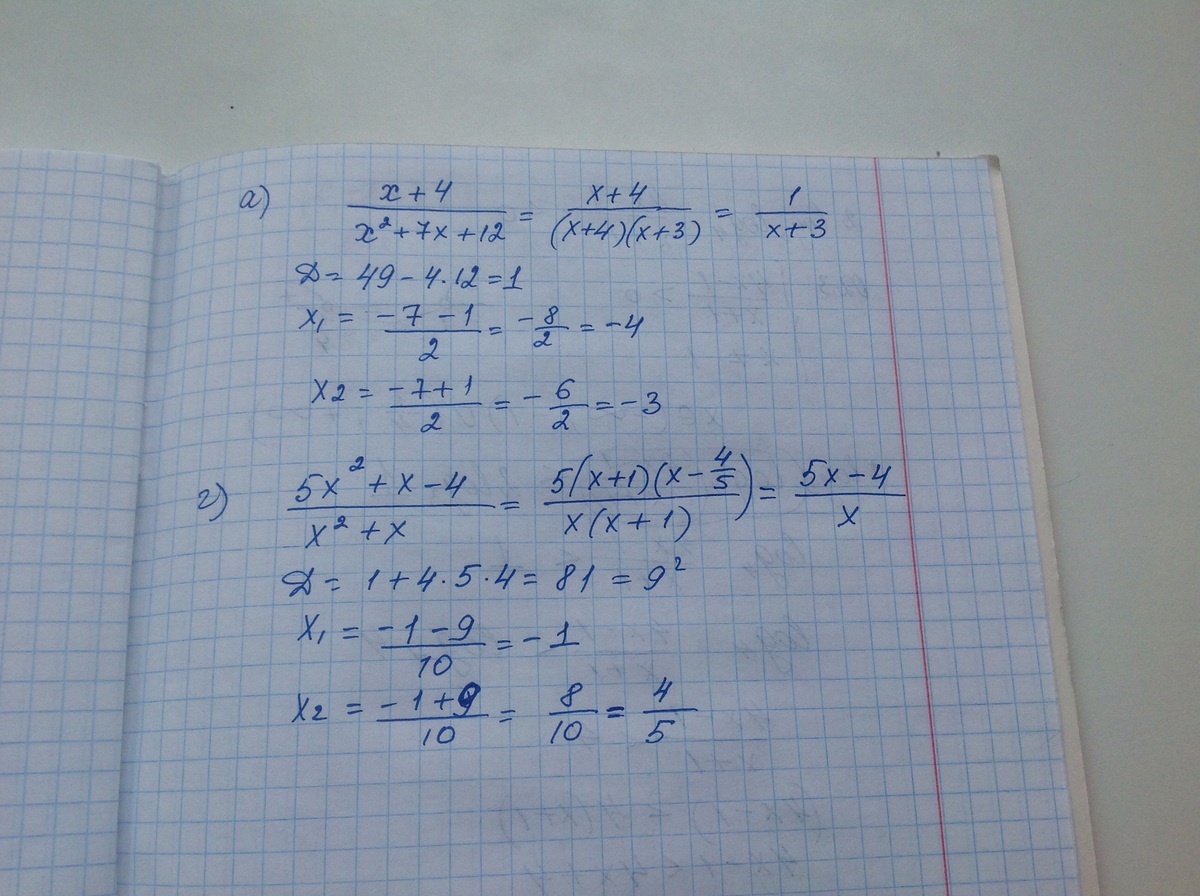 а) x+4/x²+7x+12 = x+4/(x+4)(x+3) = 1/x+3
D = 49 – 4·12 = 1
x₁ = –7–1/2 = –8/2 = –4
x2 = –7+1/2 = –6/2 = –3
г) 5x²+x–4/x²+x = 5(x+1)(x–4/5)/x(x+1) = 5x–4/x
D = 1+4·5·4 = 81 = 9²
x₁ = –1–9/10 = –1
x2 = –1+9/10 = 8/10 = 4/5